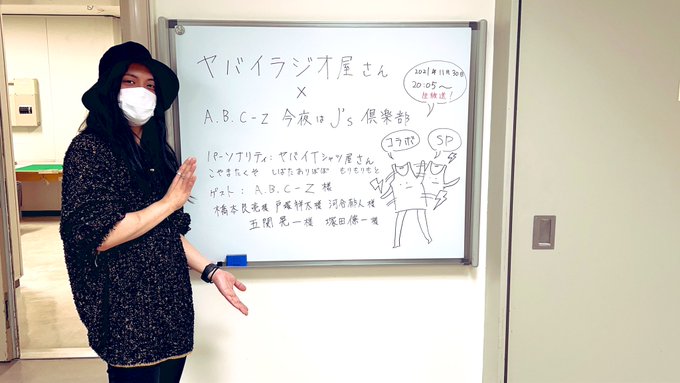 ヤバイラジオ屋さん
×
A.B.C-Z 今夜は J's 倶楽部
2021年11月30日
20:05〜
生放送！
コラボ
SP
パーソナリティ：ヤバイTシャツ屋さん
こやまたくや しばたありぼぼ もりもりもと
ゲスト：A.B.C-Z 様
橋本良亮様 戸塚祥太様 河合郁人様
五関晃一様 塚田僚一様